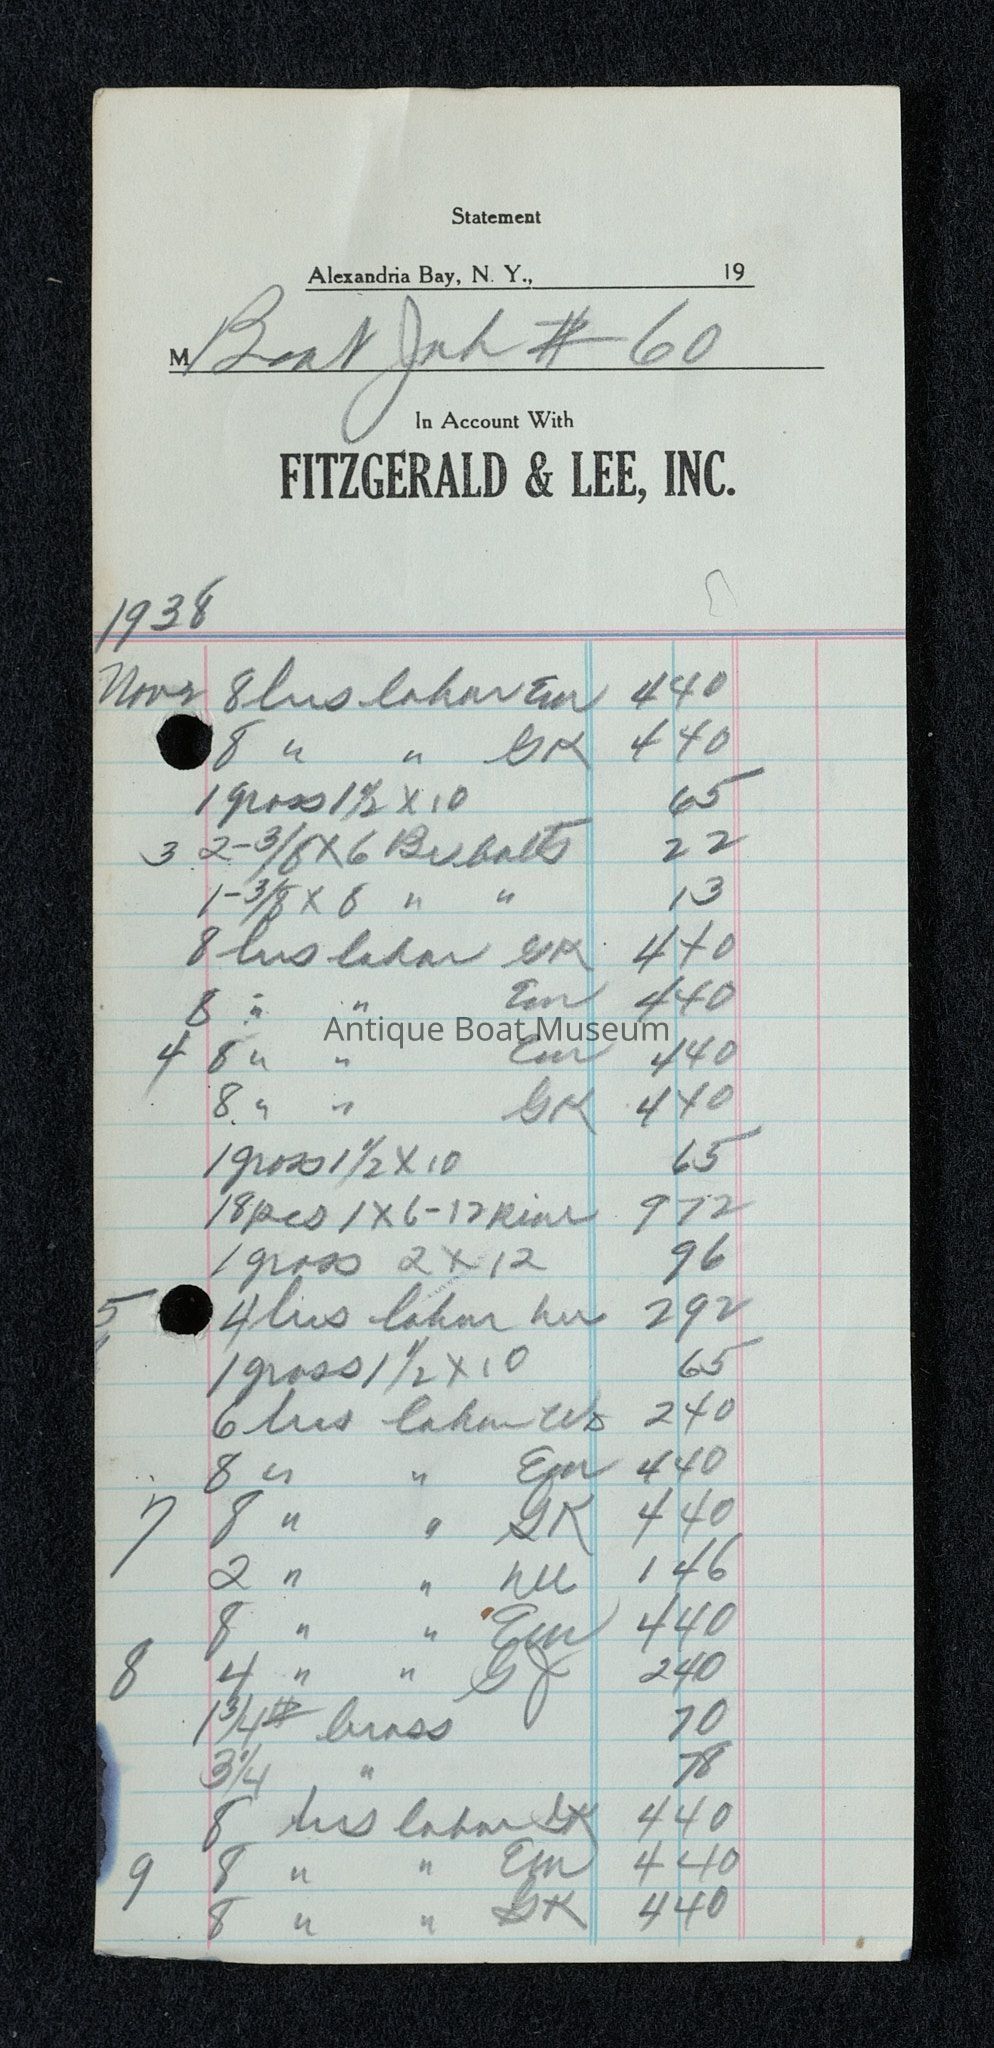 Statement
Alexandria Bay, N. Y., 19
M Boat Job # 60
In Account With
FITZGERALD & LEE, INC.
1938
Nov 2 8 hrs labor Em 4 40
8 " " GK 4 40
1 gross 1 1/2 X 10 65
3 2-3/8 X 6 Brs bolts 22
1-3/8 X 8 " " 13
8 hrs labor GK 4 40
8 " " Em 4 40
Antique Boat Museum
4 8 " " Em 4 40
8 " " GK 4 40
1 gross 1 1/2 X 10 65
18 pcs 1 X 6-12 Pine 9 72
1 gross 2 X 12 96
5 4 hrs labor 2 92
1 gross 1 1/2 X 10 65
6 hrs labor 2 40
8 " " Em 4 40
7 8 " " GK 4 40
2 " " 1 46
8 " " Em 4 40
8 4 " " GJ 2 40
1 3/4 # brass 70
3 1/4 " 78
8 hrs labor GK 4 40
9 8 " " Em 4 40
8 " " GK 4 40